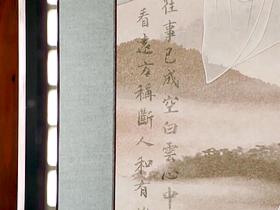 往事已成空白雲心中
看遠方稱斷人和有